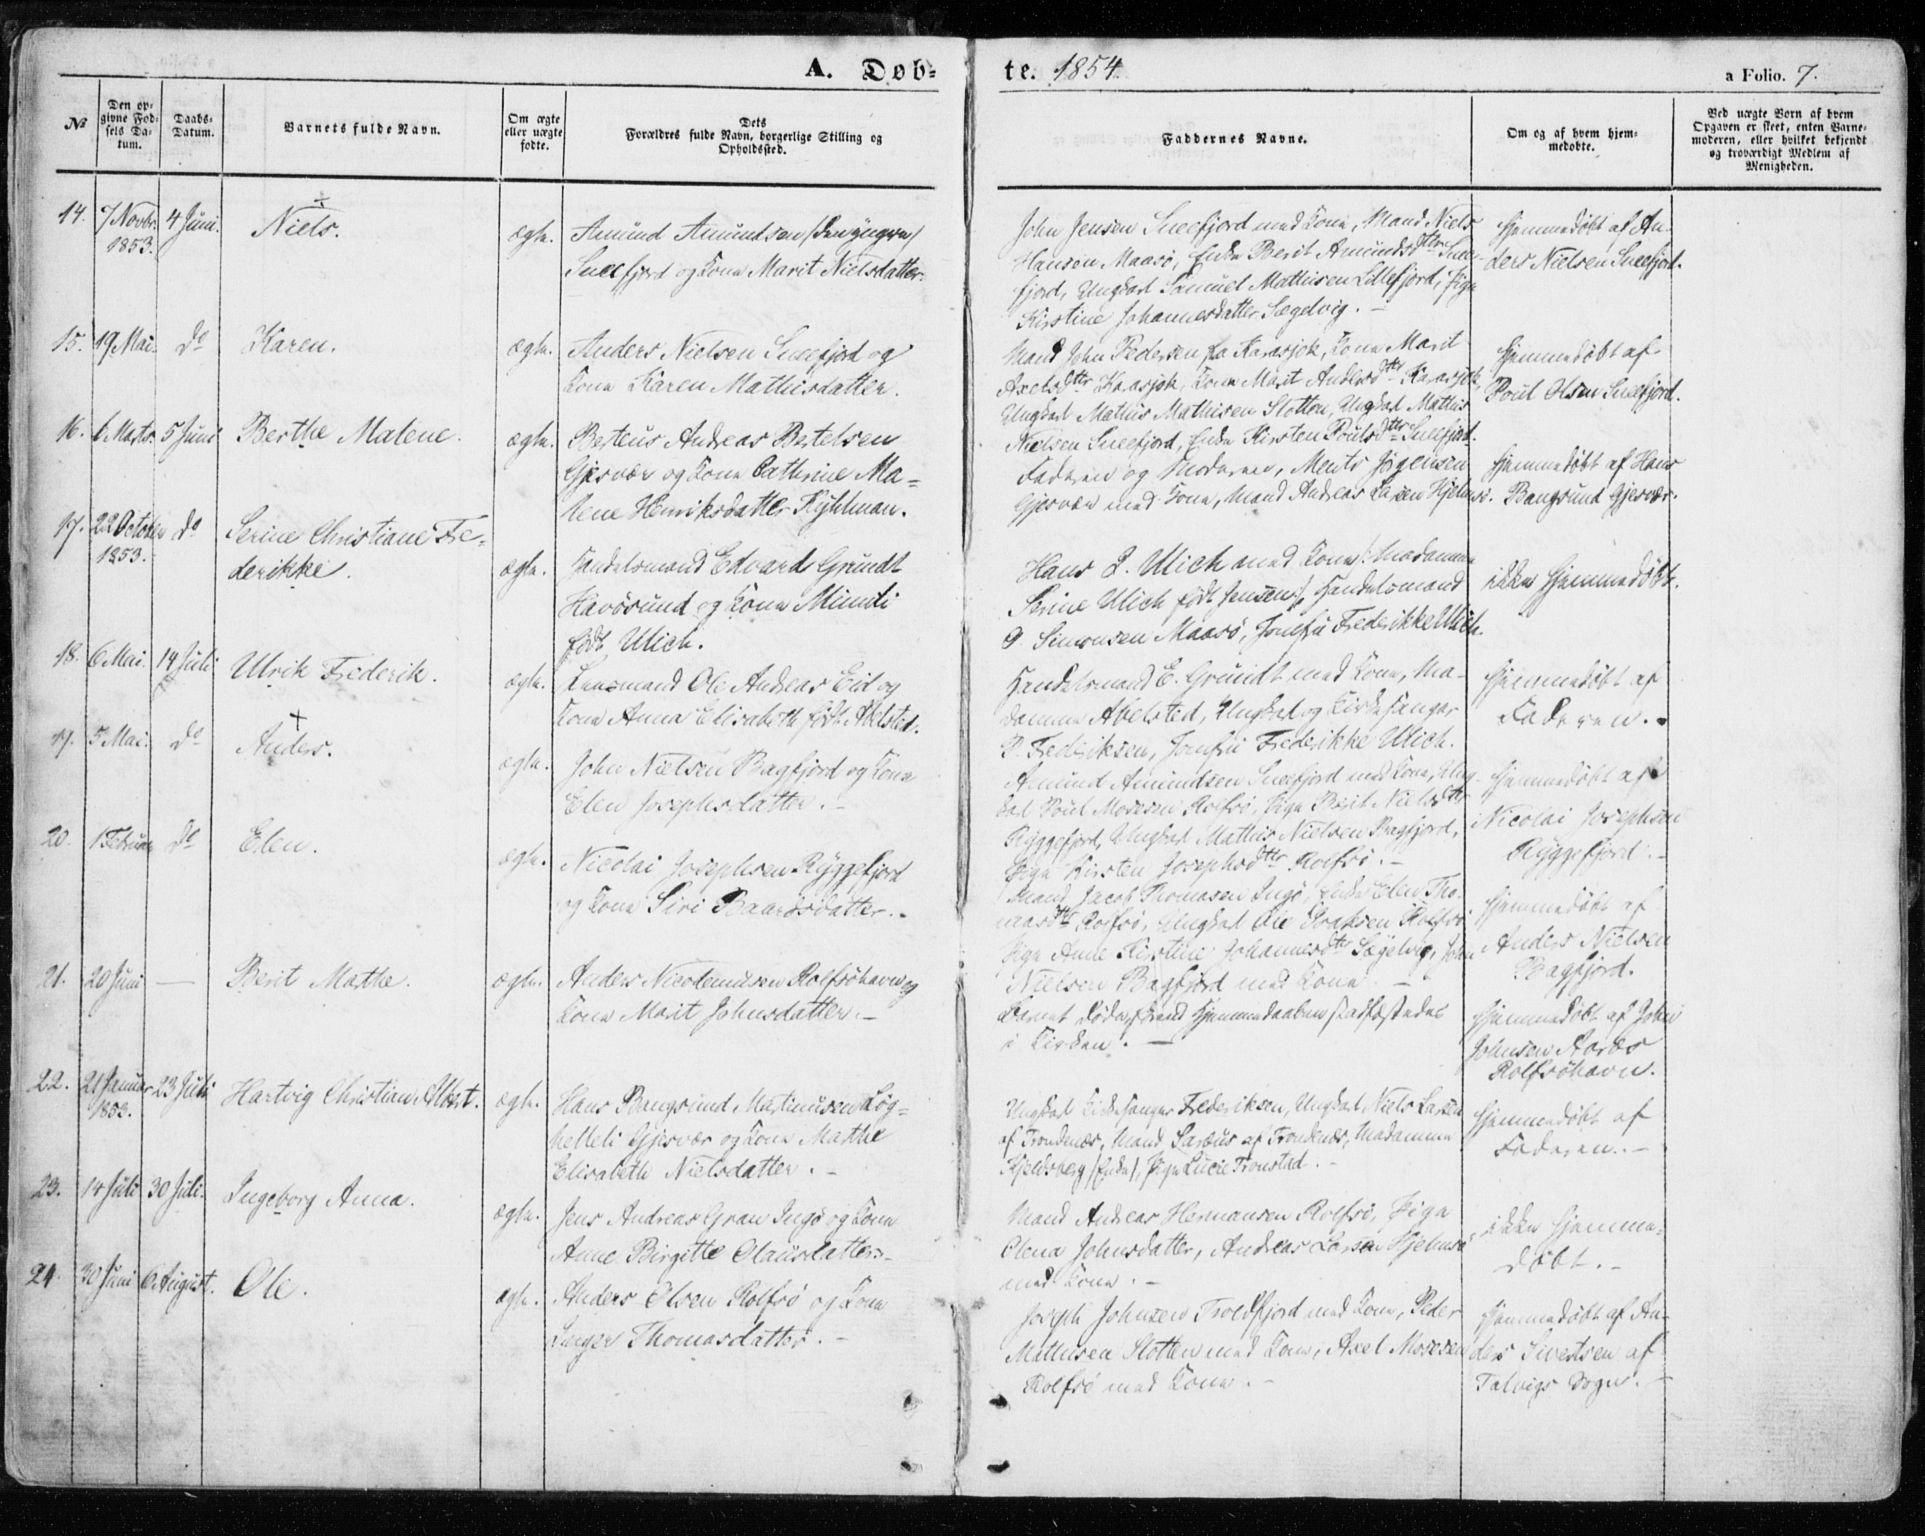 A. Døb-
te. 1854.
a Folio. 7.
№
Den op-
givne Fød-
sels Da-
tum.
Daabs-
Datum.
Barnets fulde Navn.
Om ægte
eller uægte
fødte.
Dets
Forældres fulde Navn, borgerlige Stilling og
Opholdssted.
Faddernes Navne.
Om og af hvem hjem-
medøbte.
Ved uægte Børn af hvem
Opgaven er skeet, enten Barne-
moderen, eller hvilket bekjendt
og troværdigt Medlem af
Menigheden.
14. 7 Novbr. 1853. 4 Juni. Niels. ægte.
Amund Amundsen /den yngere/
Sneefjord og Kone Marit Nielsdatter.
John Jensen Sneefjord med Kone, Mand Niels
Hansen Maasø, Enke Berit Amundsdttr Snee-
fjord, Ungkarl Samuel Mathisen Lillefjord, Pige
Kirstine Johannesdatter Sægelvig. -
Hjemmedøbt af An-
ders Nielsen Sneefjord.
15. 19 Mai. do Karen. ægte.
Anders Nielsen Sneefjord og
Kone Karen Mathisdatter.
Mand John Pedersen fra Karasjok, Kone Marit
Axelsdttr Karasjok, Kone Marit Andersdttr Karasjok,
Ungkarl Mathis Mathisen Slotten, Ungkarl Mathis
Nielsen Sneefjord, Enke Kirsten Poulsdttr Sneefjord.
Hjemmedøbt af
Poul Olsen Sneefjord.
16. 6 Marts. 5 Juni Berthe Malene. ægte.
Berteus Andreas Bertelsen
Gjesvær og Kone Cathrine Ma-
lene Henriksdatter Kyhlman.
Faderen og Moderen, Ments Jörgensen
Gjesvær med Kone, Mand Andreas Larsen Hjelmsö.
Hjemmedøbt af Hans
Bangsund Gjesvær.
17. 22 October 1853. do Serine Christiane Fre-
derikke. ægte.
Handelsmand Edvard Grundt
Havösund og Kone Mundi
født Ulich.
Hans L. Ulich med Kone /: Madamme
Serine Ulich født Jensen:/, Handelsmand
P. Simonsen Maasø, Jomfru Frederikke Ulich.
ikke hjemmedøbt.
18. 6 Mai. 14 Juli Ulrik Frederik. ægte.
Lensmand Ole Andreas Eid og
Kone Anna Elisabeth født Abelsted.
Handelsmand E. Grundt med Kone, Ma-
damme Abelsted, Ungkarl og Kirkesanger
P. Frederiksen, Jomfru Frederikke Ulich.
Hjemmedøbt af
Faderen.
19. 5 Mai. do Anders. ægte.
John Nielsen Bagfjord og Kone
Elen Josephsdatter. -
Amund Amundsen Sneefjord med Kone, Ung-
karl Poul Mosesen Rolfsö, Pige Berit Nielsdttr
Ryggefjord, Ungkarl Mathis Nielsen Bagfjord,
Pige Kirsten Josephsdttr Rolfsö. -
Hjemmedøbt af
Nicolai Josephsen
Ryggefjord. -
20. 1 Februar do Elen. ægte.
Nicolai Josephsen Ryggefjord
og Kone Siri Baardsdatter.
Mand Jacob Thomasen Ingö, Enke Elen Tho-
masdttr Rolfsö, Ungkarl Ole Isaksen Rolfsö
Pige Anne Kirstine Johannesdttr Sægelvig, John
Nielsen Bagfjord med Kone. -
Hjemmedøbt af
Anders Nielsen
Bagfjord.
21. 20 Juni — Berit Marthe. ægte.
Anders Nicodemussen Rolfsöhavn og
Kone Marit Johnsdatter. -
Barnet døde forend Hjemmedaaben stadfæstedes
i Kirken. -
Hjemmedøbt af John
Johnsen
Rolfsöhavn.
22. 21 Januar 23 Juli Hartvig Christian Albert. ægte.
Hans Bangsund Martinusen Løg-
helleli Gjesvær og Kone Marthe
Elisabeth Nielsdatter. -
Ungkarl Kirkesanger Frederiksen, Ungkarl Niels Larsen
af Trondenæs, Mand Saræus af Trondenæs, Madamme
Kjeldsberg /Enke/, Pige Lucie Tronstad. -
Hjemmedøbt af
Faderen. -
23. 14 Juli 30 Juli. Ingeborg Anna. ægte.
Jens Andreas Gran Ingö og Kone
Anne Birgitte Olausdatter. -
Mand Andreas Hermansen Rolfsö, Pige
Olena Johnsdatter, Andreas Larsen Hjelmsö
med Kone. -
ikke hjemme-
døbt. -
24. 30 Juni 6 August. Ole. ægte.
Anders Olsen Rolfsö og Kone
Inger Thomasdatter. -
Joseph Johnsen Troldfjord med Kone, Peder
Mathisen Slotten med Kone, Axel Mosesen
Rolfsö med Kone. -
Hjemmedøbt af An-
ders Sivertsen af
Talvigs Sogn. -